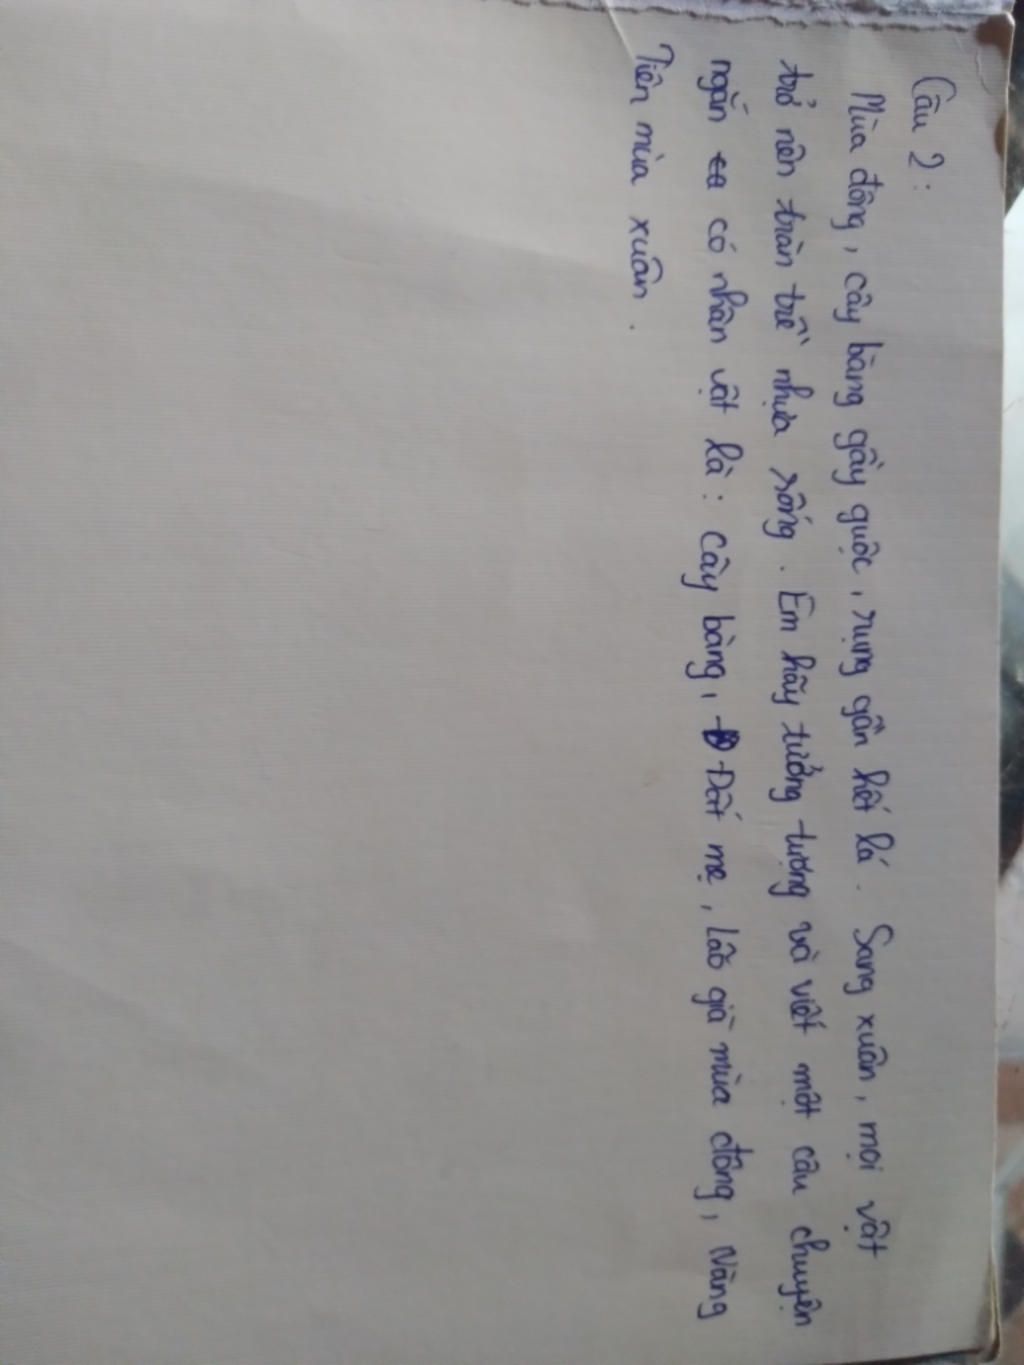 Câu 2:
Mùa đông, cây bàng gầy guộc, rụng gần hết lá. Sang xuân, mọi vật
trở nên tràn trề nhựa sống. Em hãy tưởng tượng và viết một câu chuyện
ngắn có nhân vật là: cây bàng, Đất mẹ, lão già mùa đông, Nàng
Tiên mùa xuân.